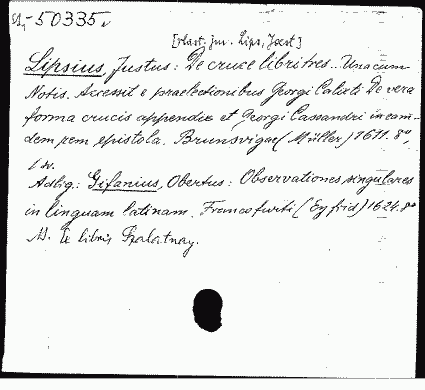 -50335
Lips, Joest]
Lipsius, Justus: De cruce libri tres. Una cum
Notis. Accessit e praelectionibus Georgi Calixti De vera
forma crucis appendix et Georgi Cassandri in ean-
dem rem epistola. Brunsvigae (Müller) 1671. 8°,
Adlig: Gifanius, Obertus: Observationes singulares
in linguam latinam. Francofurti (Eyfrid) 1624. 8°
Ex libris